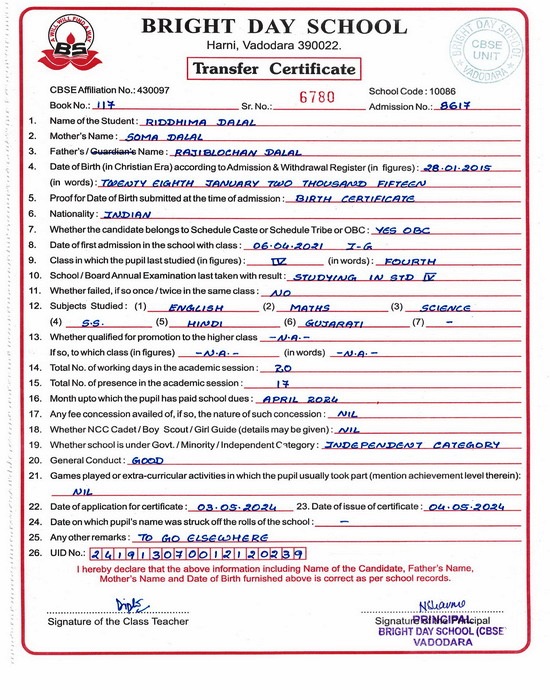 A WILL WILL FIND A WAY
BS
BRIGHT DAY SCHOOL
Harni, Vadodara 390022.
Transfer Certificate
BRIGHT DAY SCHOOL
CBSE
UNIT
VADODARA
CBSE Affiliation No.: 430097 School Code : 10086
Book No.: 117 Sr. No.: 6780 Admission No.: 8617
1. Name of the Student : RIDDHIMA DALAL
2. Mother's Name : SOMA DALAL
3. Father's / Guardian's Name : RAJIBLOCHAN DALAL
4. Date of Birth (in Christian Era) according to Admission & Withdrawal Register (in figures) : 28.01.2015
(in words) : TWENTY EIGHTH JANUARY TWO THOUSAND FIFTEEN
5. Proof for Date of Birth submitted at the time of admission : BIRTH CERTIFICATE
6. Nationality : INDIAN
7. Whether the candidate belongs to Schedule Caste or Schedule Tribe or OBC : YES OBC
8. Date of first admission in the school with class : 06.04.2021 I-G
9. Class in which the pupil last studied (in figures) : IV (in words) : FOURTH
10. School / Board Annual Examination last taken with result : STUDYING IN STD IV
11. Whether failed, if so once / twice in the same class : NO
12. Subjects Studied : (1) ENGLISH (2) MATHS (3) SCIENCE
(4) S.S. (5) HINDI (6) GUJARATI (7) -
13. Whether qualified for promotion to the higher class -N.A.-
If so, to which class (in figures) -N.A.- (in words) -N.A.-
14. Total No. of working days in the academic session : 20
15. Total No. of presence in the academic session : 17
16. Month upto which the pupil has paid school dues : APRIL 2024
17. Any fee concession availed of, if so, the nature of such concession : NIL
18. Whether NCC Cadet / Boy Scout / Girl Guide (details may be given) : NIL
19. Whether school is under Govt. / Minority / Independent Category : INDEPENDENT CATEGORY
20. General Conduct : GOOD
21. Games played or extra-curricular activities in which the pupil usually took part (mention achievement level therein):
NIL
22. Date of application for certificate : 03.05.2024 23. Date of issue of certificate : 04.05.2024
24. Date on which pupil's name was struck off the rolls of the school : -
25. Any other remarks : TO GO ELSEWHERE
26. UID No.: 241913070012120239
I hereby declare that the above information including Name of the Candidate, Father's Name,
Mother's Name and Date of Birth furnished above is correct as per school records.
Signature of the Class Teacher Signature of the Principal
PRINCIPAL
BRIGHT DAY SCHOOL (CBSE
VADODARA